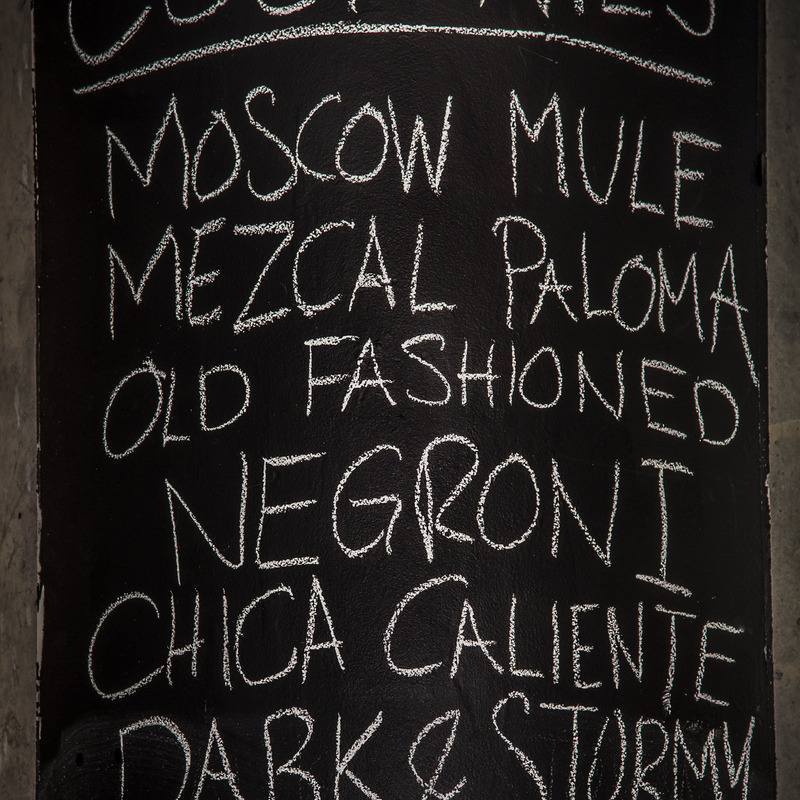 COCKTAILS
MOSCOW MULE
MEZCAL PALOMA
OLD FASHIONED
NEGRONI
CHICA CALIENTE
DARK & STORMY